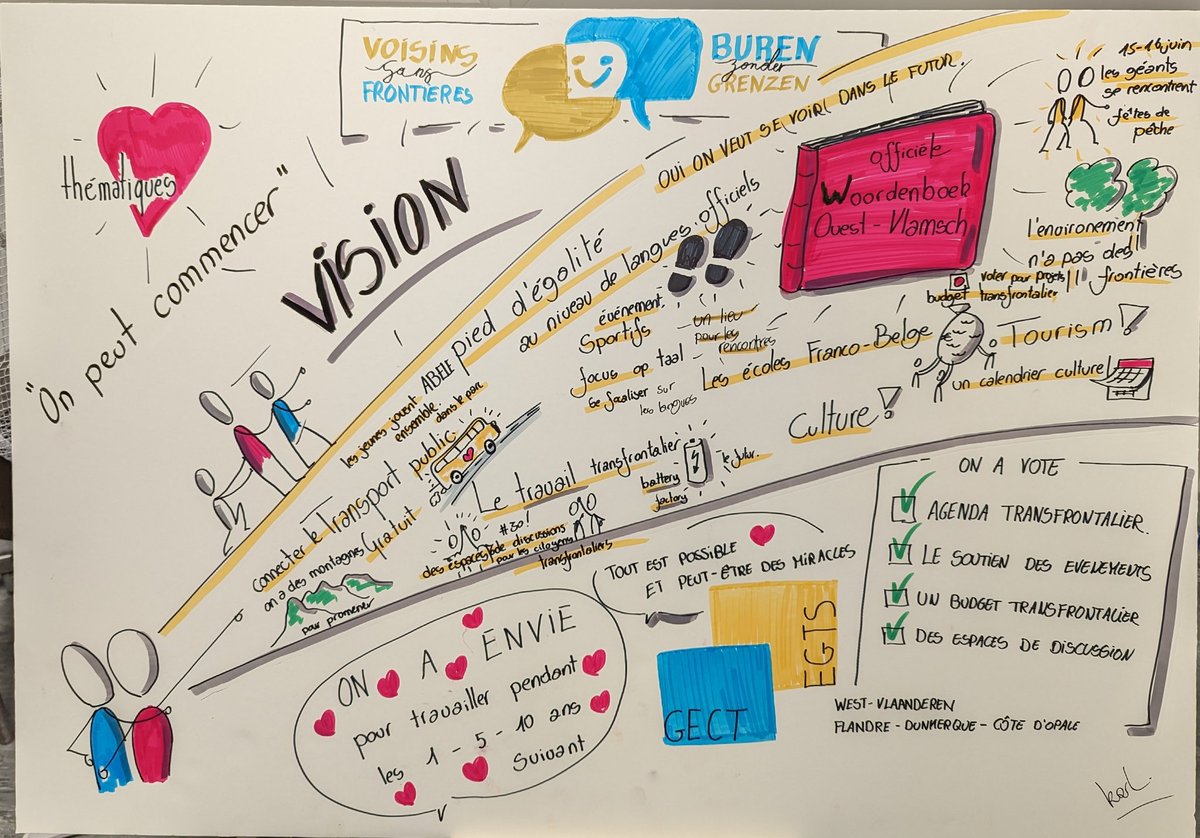 VOISINS
sans
FRONTIERES
BUREN
zonder
GRENZEN
thématiques
"On peut commencer"
VISION
OUI ON VEUT SE VOIR DANS LE FUTUR.
15-16 juin
les géants
se rencontrent
fêtes de
pêche
officiële
Woordenboek
Ouest-Vlamsch
l'environement
n'a pas des
frontières
voter pour projets
budget transfrontalier
pied d'égolité
au niveau de langues officiels
ABELE
les jeunes jouent
ensemble.
dans le parc
événement
Sportifs
un lieu
pour les
rencontres
focus op taal
se focaliser sur
les langues
Les écoles Franco-Belge
Tourism!
un calendrier culture
Culture!
connecter le Transport public
Gratuit
on a des montagnes
pour promener
Le travail transfrontalier
battery
factory
le futur.
#30!
des espaces de discussions
pour les citoyens
transfrontaliers
TOUT EST POSSIBLE
ET PEUT-ÊTRE DES MIRACLES
ON A ENVIE
pour travailler pendant
les 1 - 5 - 10 ans
suivant
EGTS
GECT
ON A VOTE
AGENDA TRANSFRONTALIER
LE SOUTIEN DES EVENEMENTS
UN BUDGET TRANSFRONTALIER
DES ESPACES DE DISCUSSION
WEST-VLAANDEREN
FLANDRE - DUNMERQUE - CÔTE D'OPALE